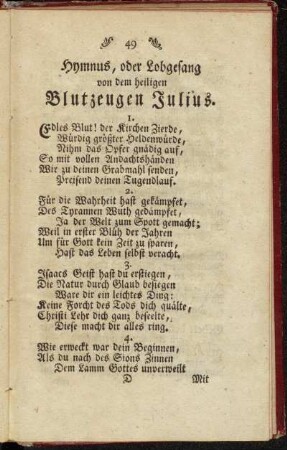 49
Hymnus, oder Lobgesang
von dem heiligen
Blutzeugen Julius.
1.
Edles Blut! der Kirchen Zierde,
Würdig größter Heldenwürde,
Nihm das Opfer gnädig auf,
So mit vollen Andachtshänden
Wir zu deinen Grabmahl senden,
Preisend deinen Tugendlauf.
2.
Für die Wahrheit hast gekämpfet,
Des Tyrannen Wuth gedämpfet,
Ja der Welt zum Spott gemacht;
Weil in erster Blüh der Jahren
Um für Gott kein Zeit zu sparen,
Hast das Leben selbst veracht.
3.
Isaacs Geist hast du erstiegen,
Die Natur durch Glaub besiegen
Ware dir ein leichtes Ding:
Keine Forcht des Tods dich quälte,
Christi Lehr dich ganz beseelte,
Diese macht dir alles ring.
4.
Wie erweckt war dein Beginnen,
Als du nach des Sions Zinnen
Dem Lamm Gottes unverweilt
D Mit